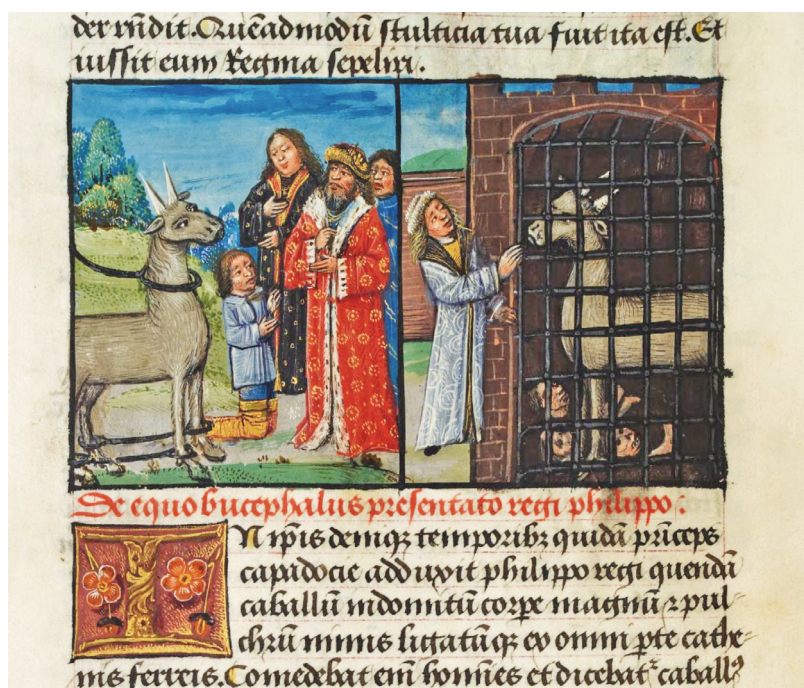 der rūdit. Quēadmodū stulticia tua fuit ita est. Et
iussit eum Regina sepeliri.
De equo bucephalus presentato regi philippo:
IN ip̄is deniqȝ temporibȝ quidā prīceps
capadocie adduxit philippo regi quendā
caballū indomitū corꝑe magnū ⁊ pul-
chrū nimis ligatūqȝ ex omni ꝑte cathe-
nis ferreis. Comedebat em̄ homīes et dicebat᷑ caballꝰ